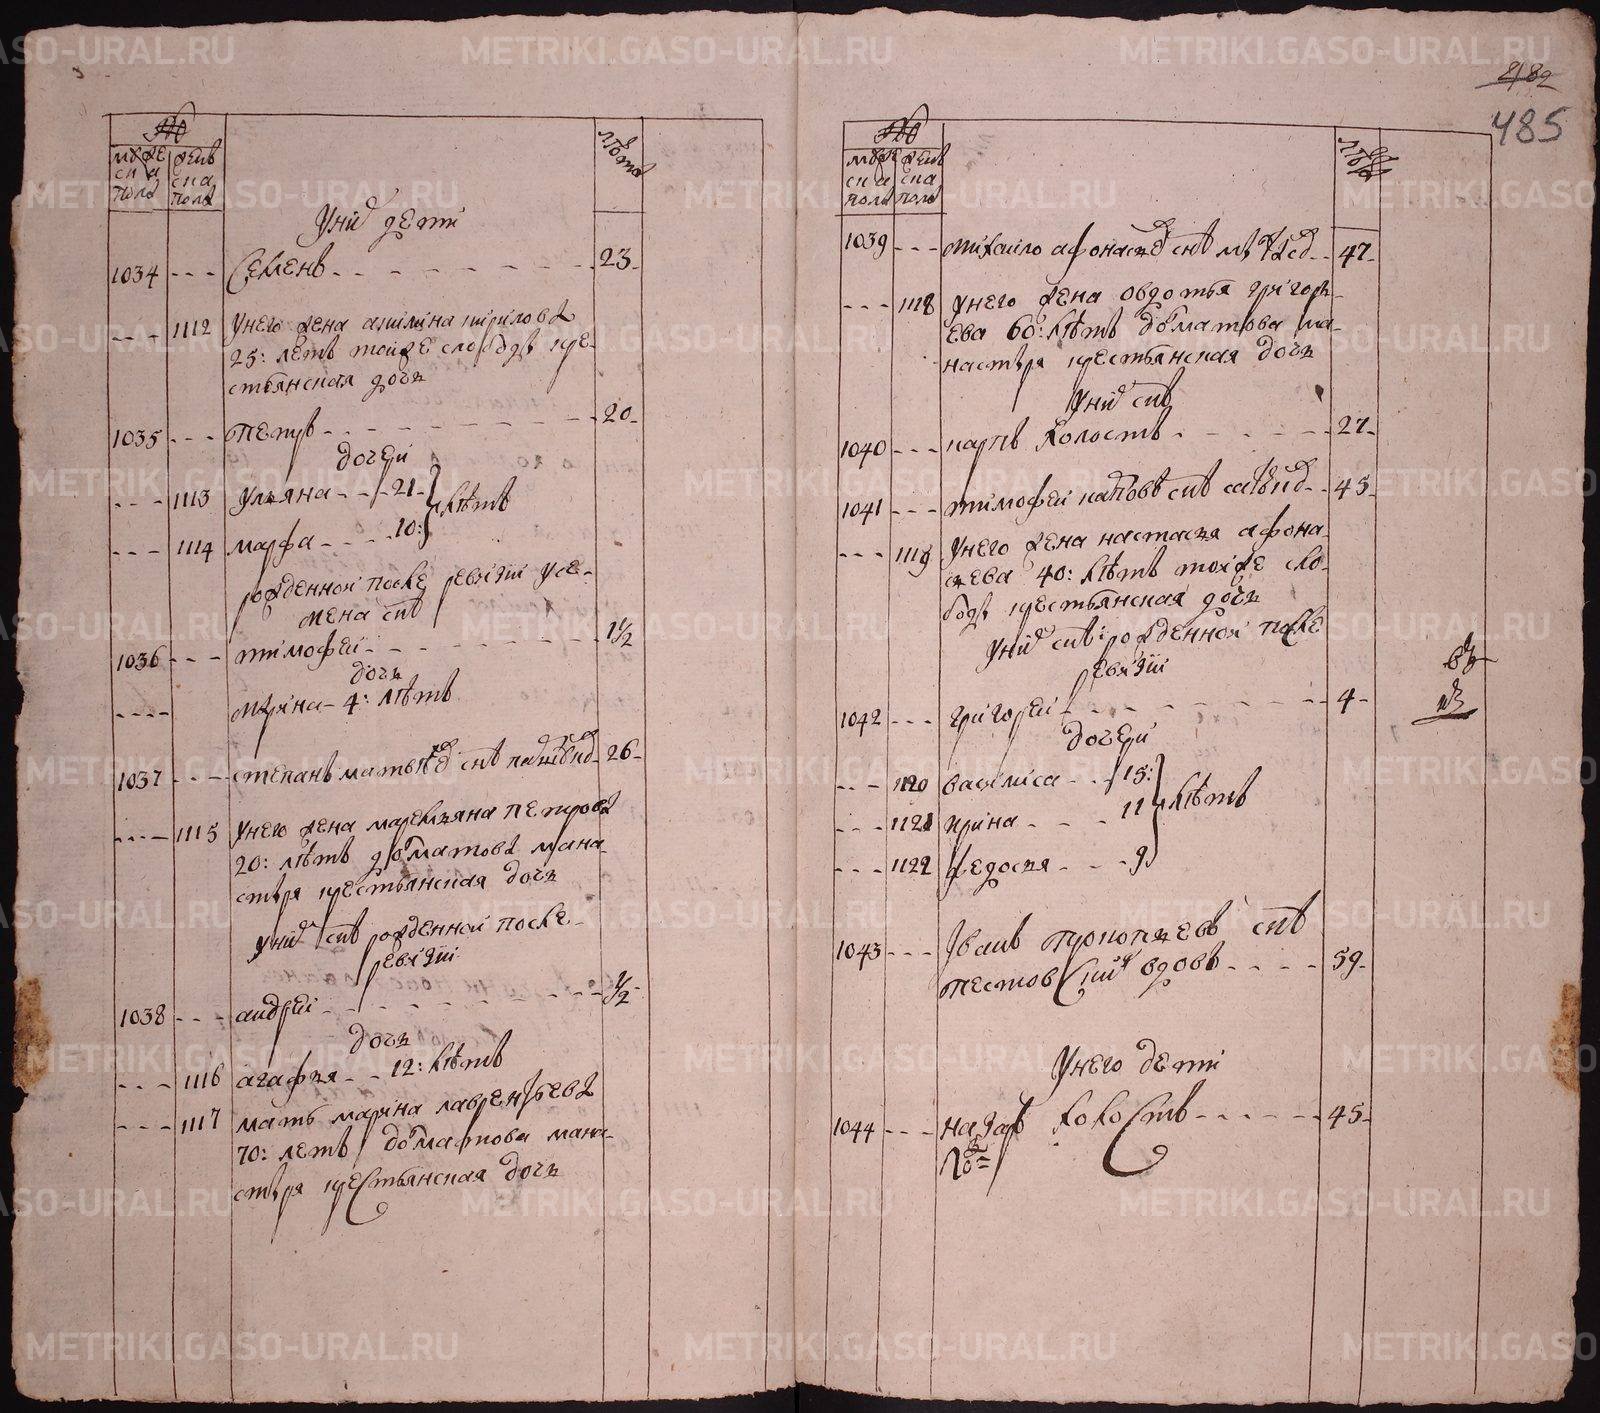 482
485
№
мужеска полу
женска полу
лѣта
У них дети
1034 - - - Семенъ - - - - - - - - 23 -
- - - 1112 У него жена акилина кирилова
25: летъ той же слободы кре-
стьянская дочь
1035 - - - Петръ - - - - - - - - 20 -
дочери
- - - 1113 Ульяна - - - 21 - } лѣтъ
- - - 1114 марфа - - - - 10: }
рожденной после ревизiи у се-
мена снъ
1036 - - - тимофеи - - - - - - - 1 1/2
дочь
- - - - ирина - 4: лѣтъ
1037 - - - степанъ матвѣевъ снъ - 26 -
- - - 1115 У него жена маремьяна петрова
20: лѣтъ доматова мана-
стыря крестьянская дочь
у них снъ рожденной после
ревизiи
1038 - - - андреи - - - - - - - - 1/2 -
дочь
- - - 1116 агафья - - 12: лѣтъ
- - - 1117 мать марина лаврентьева
70: летъ доматова мана-
стыря крестьянская дочь
№
мужеска полу
женска полу
лѣта
1039 - - - михаило афонасьевъ снъ - - 47 -
- - - 1118 у него жена овдотья григорь-
ева 60: лѣтъ доматова ма-
настыря крестьянская дочь
у них снъ
1040 - - - карпъ холостъ - - - - - 27 -
1041 - - - тимофеи снъ - - 45 -
- - - 1119 У него жена настасья афона-
сьева 40: лѣтъ той же сло-
боды крестьянская дочь
У них снъ рожденной после
ревизiи
1042 - - - григореи - - - - - - - 4 -
дочери
- - - 1120 василиса - - - 15: } лѣтъ
- - - 1121 ирина - - - - 11 }
- - - 1122 федосья - - - 9 }
1043 - - - Iванъ прокопьевъ снъ
пестовскихъ вдовъ - - - - 59 -
У него дети
1044 - - - назаръ холостъ - - - - - 45 -